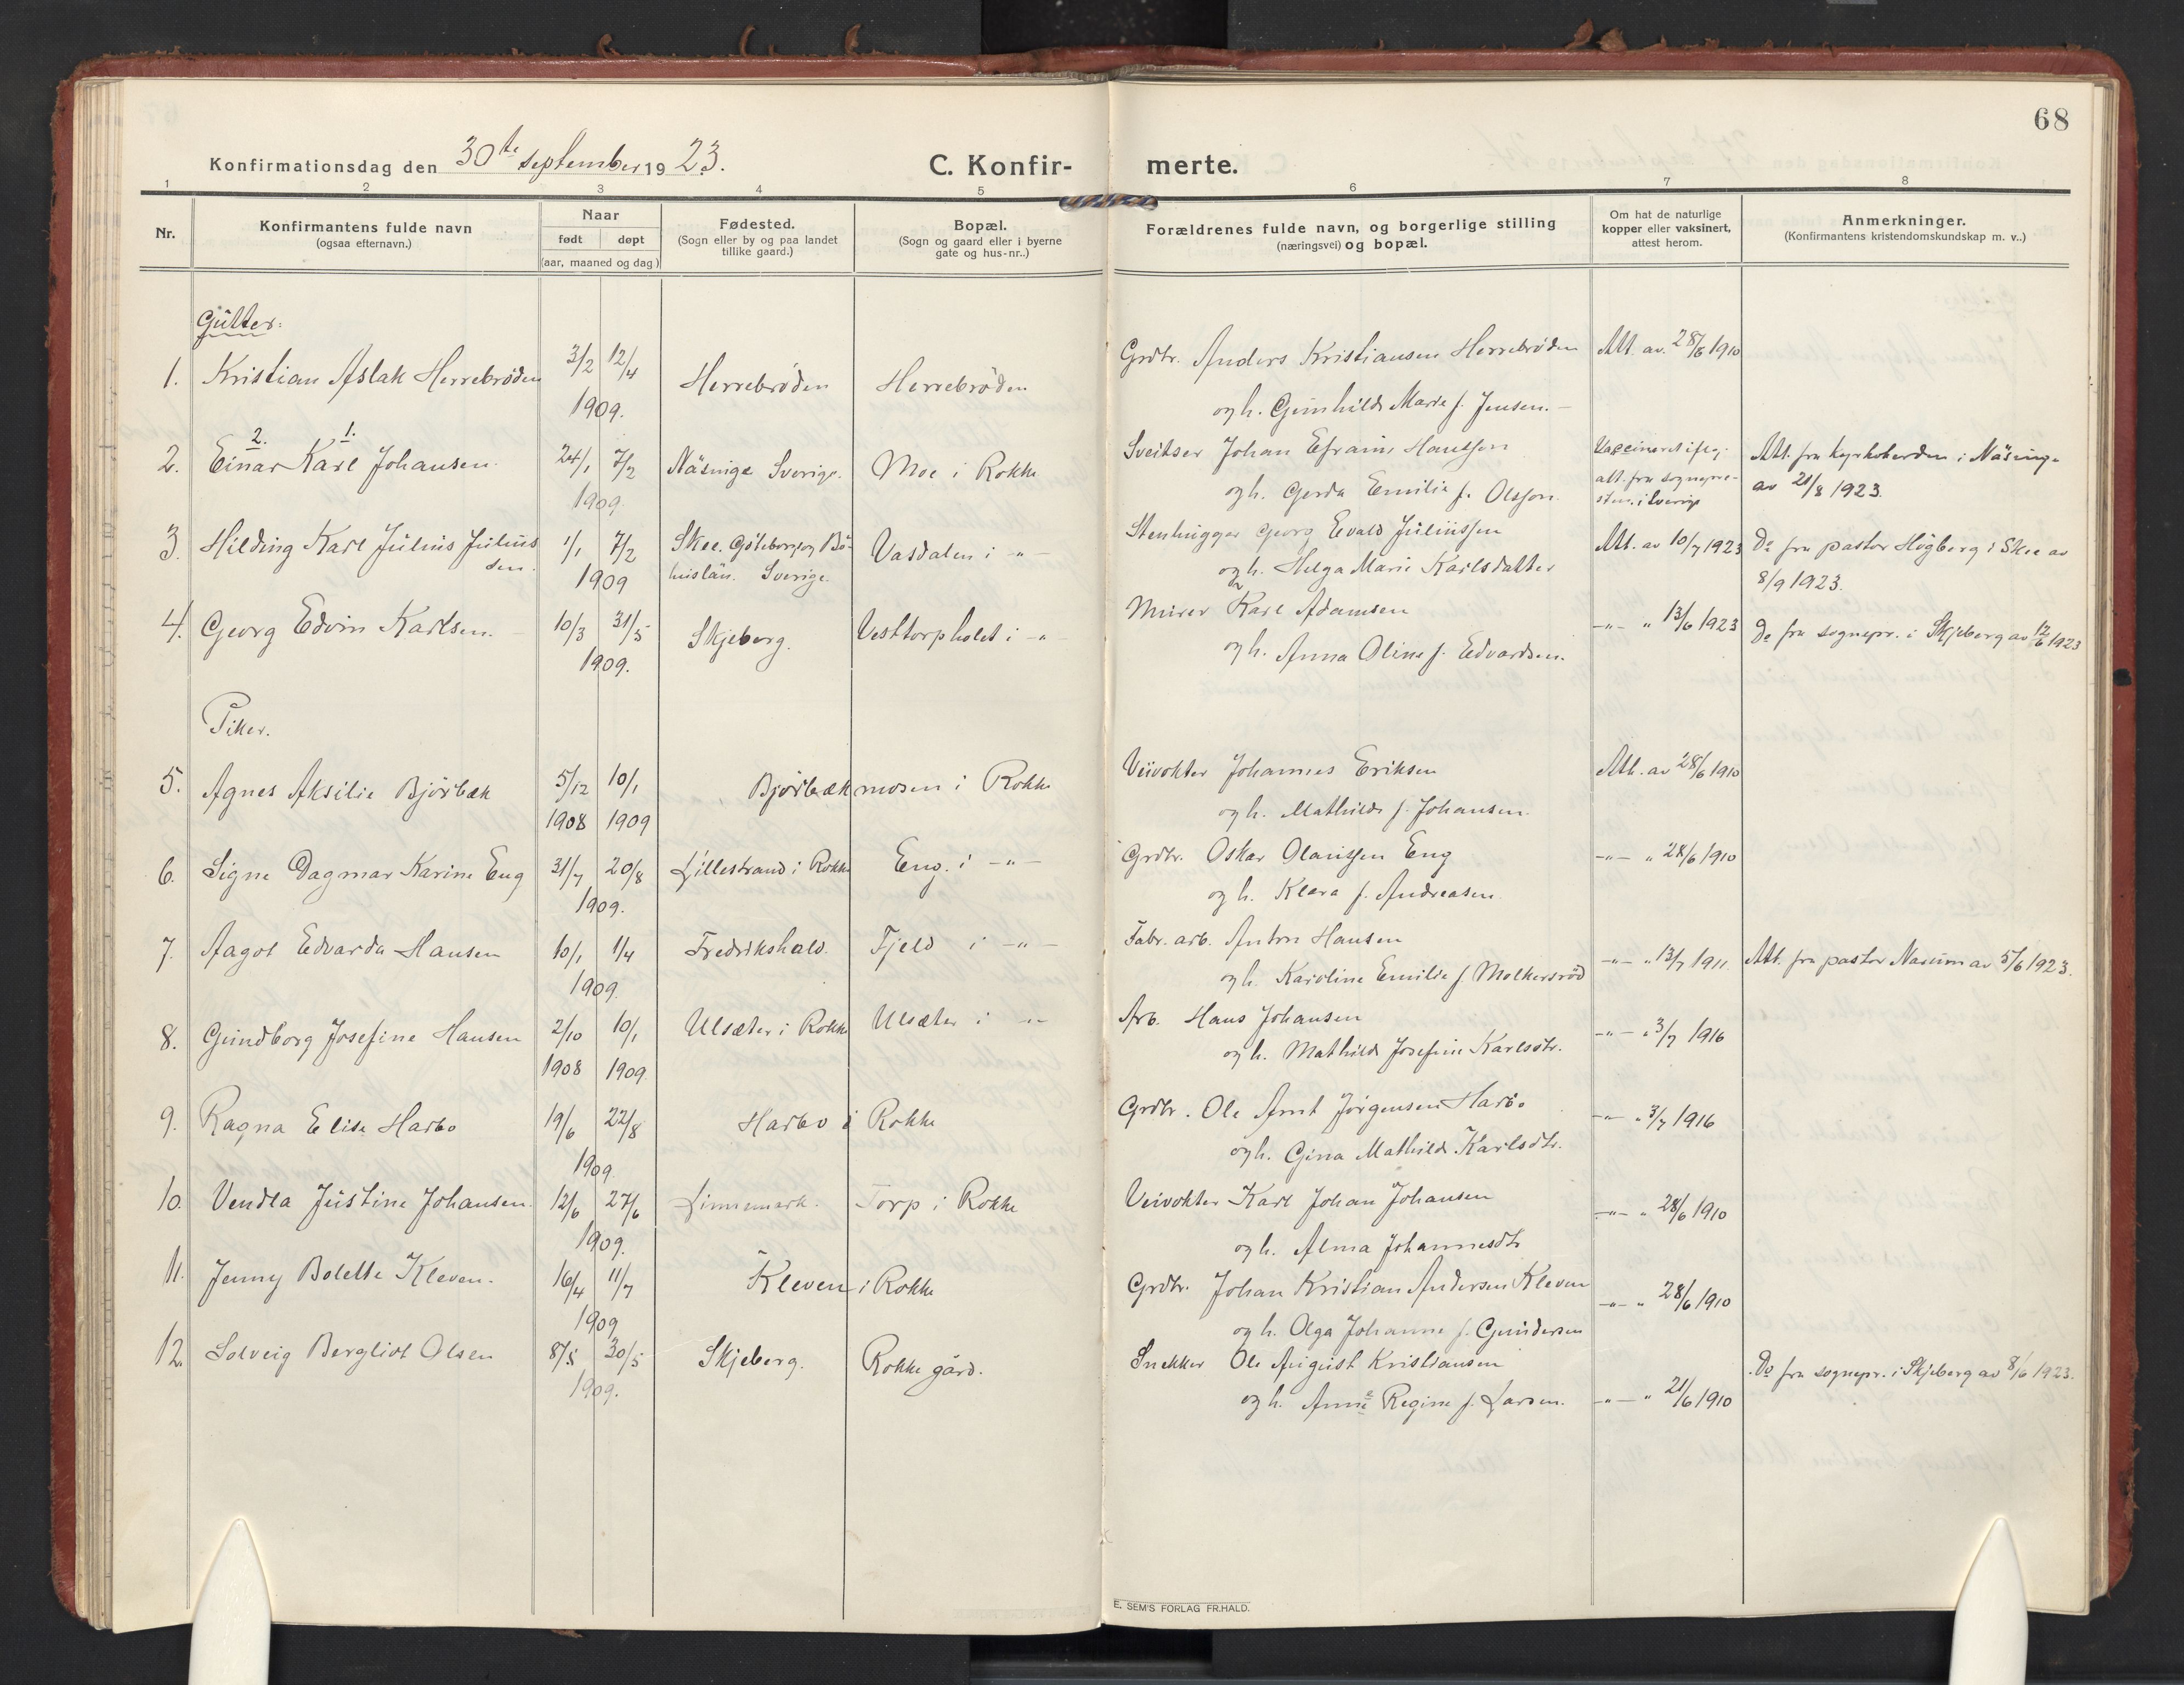 68
Konfirmationsdag den 30te september 1923.
C. Konfir- merte.
1 2 3 4 5 6 7 8
Nr.
Konfirmantens fulde navn
(ogsaa efternavn.)
Naar
født døpt
(aar, maaned og dag)
Fødested.
(Sogn eller by og paa landet
tillike gaard.)
Bopæl.
(Sogn og gaard eller i byerne
gate og hus-nr..)
Forældrenes fulde navn, og borgerlige stilling
(næringsvei) og bopæl.
Om hat de naturlige
kopper eller vaksinert,
attest herom.
Anmerkninger.
(Konfirmantens kristendomskundskap m. v..)
Gutter:
1. Kristian Aslak Herrebröden 3/2 12/4 Herrebröden Herrebröden Grdbr. Anders Kristiansen Herrebröden Att. av. 28/6 1910
1909. og h. Gunhilde Marie f. Jensen. –
2. 1.
2. Einar Karl Johansen. 24/1 7/2 Näsinge Sverige. Moe i Rokke Sveitser Johan Efraim Hansson Att. fra kyrkoherden i Näsinge
1909. og h. Gerda Emilia f. Olsson. att. fra sognepre- av 21/8 1923.
sten i Sverige
3. Hilding Karl Julius Julius 1/1 7/2 Skee. Göteborg og Bo- Vasdalen i -"- Stenhugger Georg Evald Juliussen Att. av 10/7 1923 Do fra pastor Högberg i Skee av
sen. 1909 huslän. Sverige. og h. Helga Marie Karlsdatter 8/9 1923.
4. Georg Edvin Karlsen. 10/3 31/5 Skjeberg. Vesttorpholet i -"- Murer Karl Adamsen -"- " 13/6 1923 Do fra sognepr. i Skjeberg av 12/6 1923
1909. og h. Anna Oline f. Edvardsen.
Piker.
5. Agnes Aksilie Björbæk 5/12 10/1 Björbækmosen i Rokke Veivokter Johannes Eriksen Att. av 28/6 1910
1908 1909 og h. Mathilde f. Johansen.
6. Signe Dagmar Karine Eng 31/7 20/8 Lillestrand i Rokke Eng. i -"- Grdbr. Oskar Olaussen Eng -"- " 28/6 1910
1909. og h. Klara f. Andreasen.
7. Aagot Edvarda Hansen 10/1 1/4 Fredrikshald. Fjeld i -"- Fabr. arb. Anton Hansen -"- " 13/7 1911. Att. fra pastor Narum av 5/6 1923.
1909. og h. Karoline Emilie f. Molkersröd
8. Gundborg Josefine Hansen 2/10 10/1 Ulsæter i Rokke Ulsæter i -"- Arb. Hans Johansen -"- " 3/7 1916
1908 1909. og h. Mathilde Josefine Karlsdtr.
9. Ragna Elise Harbo 19/6 22/8 Harbo i Rokke Grdbr. Ole Arnt Jörgensen Harbo -"- " 3/7 1916
1909. og h. Gina Mathilde Karlsdtr.
10. Vendla Justine Johansen. 12/6 27/6 Linnemark. Torp i Rokke Veivokter Karl Johan Johansen -"- " 28/6 1910
1909. og h. Alma Johannesdtr
11. Jenny Bolette Kleven. 16/4 11/7 Kleven i Rokke Grdbr. Johan Kristian Andersen Kleven -"- " 28/6 1910
1909 og h. Olga Johanne f. Gundersen
12. Solveig Bergliot Olsen 8/5 30/5 Skjeberg. Rokke gård. Snekker Ole August Kristiansen Do fra sognepr. i Skjeberg av 8/6 1923.
1909. og h. Anne Regine f. Larsen. -"- " 21/6 1910
E. SEM'S FORLAG FR.HALD.